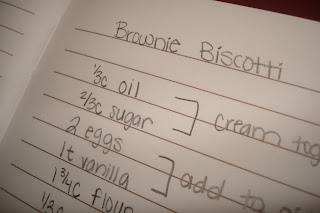 Brownie Biscotti
1/3c oil
2/3c sugar ] cream tog
2 eggs
1t vanilla ] add to
1 3/4c flour